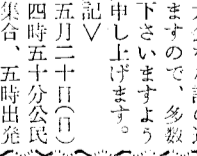 ますので、多数
下さいますよう
申し上げます。
記▽
五月二十日(日)
四時五十分公民
集合、五時出発